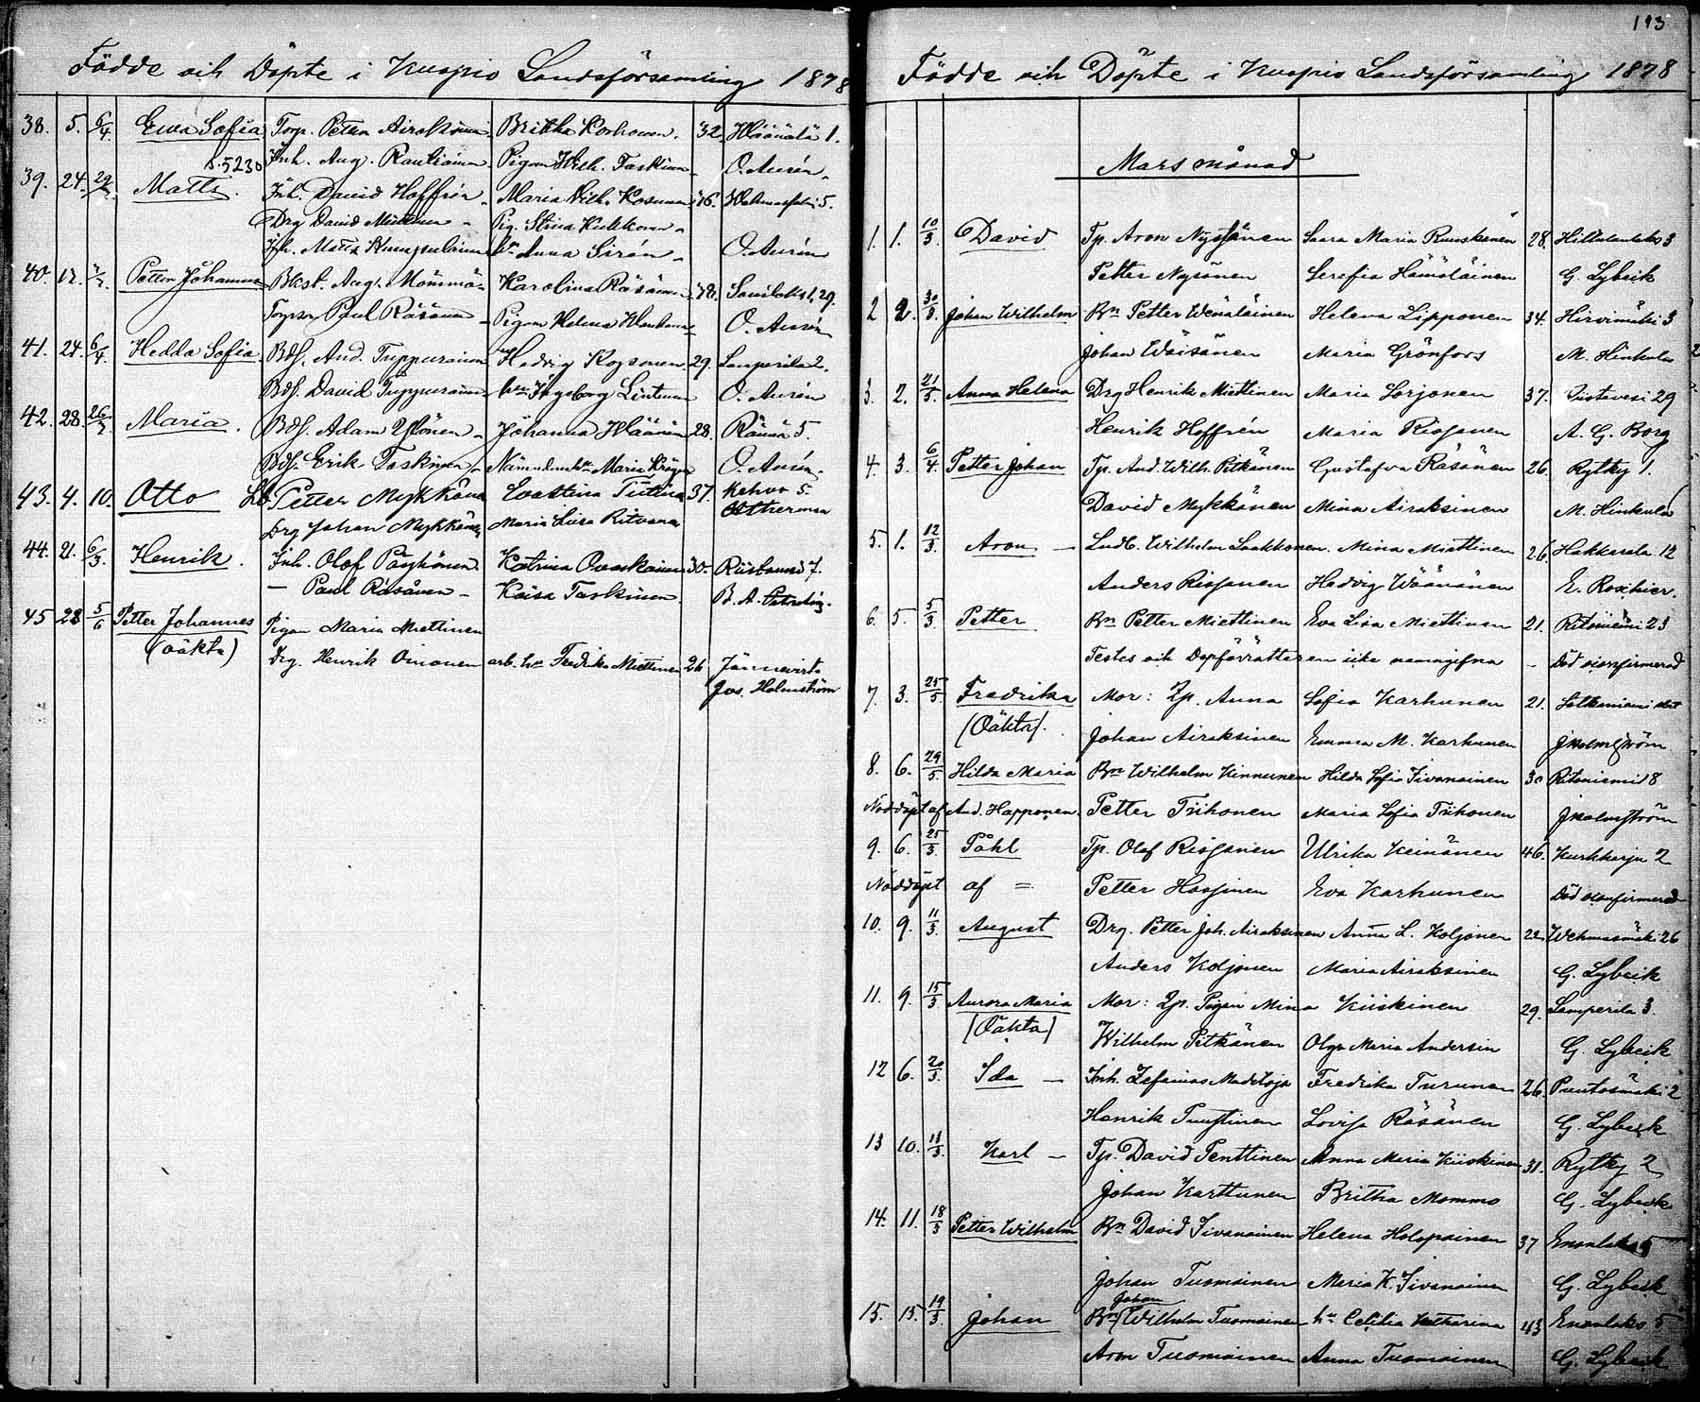 Födde och Döpte i Kuopio Landsförsamling 1878
38. 5. 6/4. Ewa Sofia Torp. Petter Airaksinen Britha Korhonen. 32. Väänälä 1.
Inh. Aug. Rautiainen Pigan Wilh. Taskinen O. Aurén.
S. 5230
39. 24. Matti. Inh. David Hoffrén Maria Wilh. Kosunen 36. 5.
Drg David Miettinen Pig. Stina Kukkonen
Inh. Matts Kumpulainen Hu Anna Sirén O. Aurén
40. 12. Petter Johannes Aug. Mömmö Karolina Räsänen 38. 29.
Paul Räsänen Pigan Helena O. Aurén
41. 24. 6/4. Hedda Sofia Bds. And. Tuppurainen Hedvig Roponen 29. Lamperila 2.
Bds. David Tuppurainen hu Ingeborg Lintunen O. Aurén
42. 28. Maria. Bds. Adam Ylönen Johanna Väänän 28. Räimä 5.
Bds. Erik Taskinen Maria O. Aurén.
43. 4. 10. Otto Petter Mykkänen Eva Stina Tiitinen 37. Kehvo 5.
Drg Johan Mykkänen Maria Lisa Ritvanen
44. 21. 6/3. Henrik. Inh. Olof Pöyhönen Katrina Ovaskainen 30. 7.
— Paul Räsänen — Kaisa Taskinen B. A.
45 28 5/6 Petter Johannes Pigan Maria Miettinen
(oäkta) Drg. Henrik Oinonen arb. hu Fredrika Miettinen 26 Jännevirta
Jos. Holmström
193
Födde och Döpte i Kuopio Landsförsamling 1878
Mars månad
1. 1. 10/3. David Tp. Aron Nyyssönen Saara Maria Ruuskanen 28. Hiltulanlaks 3
Petter Nysönen Serefia Hämäläinen G. Lybeck
2 2. Johan Wilhelm Bn Petter Wenäläinen Helena Lipponen 34. Hirvimäki 3
Johan Wäisänen Maria Grönfors M. Hinkula
3. 2. 21/5. Anna Helena Drg Henrik Miettinen Maria Lorjonen 37. Puutavesi 29
Henrik Hoffrén Maria Risssanen A. G. Borg
4. 3. 6/4. Petter Johan Tp. And. Wilh. Pitkänen Gustafva Räsänen 26. Rytky 1.
David Mykkänen Mina Airaksinen M. Hinkula
5. 1. 12/3. Aron — Wilhelm Laakkonen. Mina Miettinen 26. Hakkarala 12
Anders Rissanen Hedvig Väänänen E. Roschier.
6. 5. 5/3. Petter Bn Petter Miettinen Eva Lisa Miettinen 21. Ritoniemi 23
Testes och Dopförrättaren icke namngifna — Död okonfirmerad
7. 3. 25/5. Fredrika Mor: Lp. Anna Sofia Karhunen 21.
(Oäkta). Johan Airaksinen Emma M. Karhunen J Holmström
8. 6. 29/5 Hilda Maria Bn Wilhelm Kinnunen Hilda Sofia Iivanainen 30 Ritoniemi 8
Nöddöpt af And. Happonen. Petter Tiihonen Maria Sofia Tiihonen J Holmström
9. 6. 25/3. Påhl Tp. Olof Rissanen Ulrika Keinänen 46. Kurkharju 2
Nöddöpt af = Petter Hassinen Eva Karhunen Död okonfirmerad
10. 9. 11/3. August Drg. Petter Joh. Airaksinen Anna L. Koljonen 22. Wehmasmäki 26
Anders Koljonen Maria Airaksinen G. Lybeck
11. 9. 15/3 Aurora Maria Mor: Lp. Pigan Mina Kiiskinen 29. Lamperila 3.
(Oäkta) Wilhelm Pitkänen Olga Maria Andersin G. Lybeck
12 6. 20/3. Ida — Inh. Zefanias Madetoja Fredrika Turunen 26. Puutosmäki 2
Henrik Puustinen Lovisa Räsänen G. Lybeck
13 10. 11/3. Karl — Tp. David Penttinen Anna Maria Kiiskinen 31. Rytky 2
Johan Karttunen Britha Mommo G. Lybeck
14. 11. 18/3 Petter Wilhelm Bn David Iivanainen Helena Holopainen 37 Enonlaks 5
Johan Tuomainen Maria K. Iivanainen G. Lybeck
Johan
15. 15. 19/3. Johan Bn Wilhelm Tuomainen hu Cecilia Katharina 43 Enonlaks 5
Aron Tuomainen Anna Tuomainen G. Lybeck